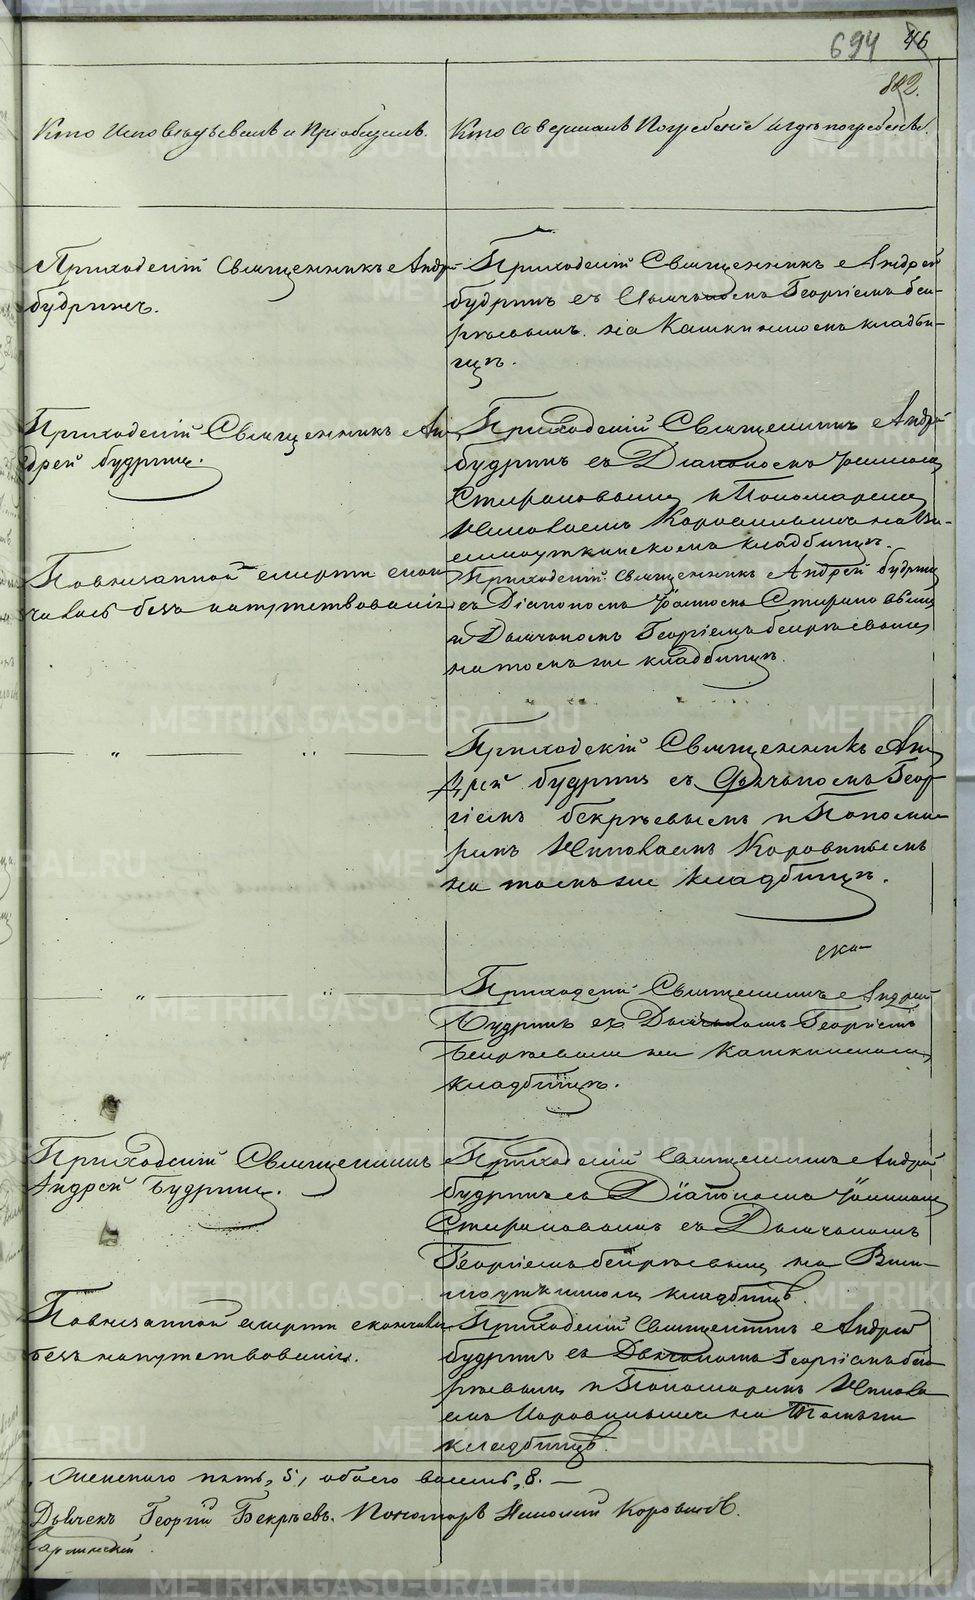 694 46
882.
Кто Исповѣдывалъ и Пріобщалъ.
Кто совершалъ Погребеніе и гдѣ погребены.
Приходскій Священникъ Андрей
Будринъ.
Приходскій Священникъ Андрей
Будринъ съ Дьячкомъ Георгіемъ Бек-
рѣевымъ на Кашкинскомъ кладби-
щѣ.
Приходскій Священникъ Ан-
дрей Будринъ.
Приходскій Священникъ Андрей
Будринъ съ Діакономъ
и Пономаремъ
Николаемъ Коровинымъ на Ви-
кладбищѣ.
По внезапной смерти скон-
чалась безъ напутствованія
Приходскій Священникъ Андрей Будринъ
съ Діакономъ
и Дьячкомъ Георгіемъ Бекрѣевымъ
на томъ же кладбищѣ.
Приходскій Священникъ Ан-
дрей Будринъ съ Дьячкомъ Геор-
гіемъ Бекрѣевымъ и Понома-
ремъ Николаемъ Коровинымъ
на томъ же кладбищѣ.
Приходскій Священникъ Андрей
Будринъ съ Дьячкомъ Георгіемъ
Бекрѣевымъ на Кашкинскомъ
кладбищѣ.
Приходскій Священникъ
Андрей Будринъ.
Приходскій Священникъ Андрей
Будринъ съ Діакономъ
съ Дьячкомъ
Георгіемъ Бекрѣевымъ на
кладбищѣ.
По внезапной смерти скончался
безъ напутствованія.
Приходскій Священникъ Андрей
Будринъ съ Дьячкомъ Георгіемъ Бек-
рѣевымъ и Пономаремъ Никола-
емъ Коровинымъ на томъ же
кладбищѣ.
Женскаго пять, 5, обоего восемь, 8. —
Дьячекъ Георгій Бекрѣевъ. Пономарь Николай Коровинъ.